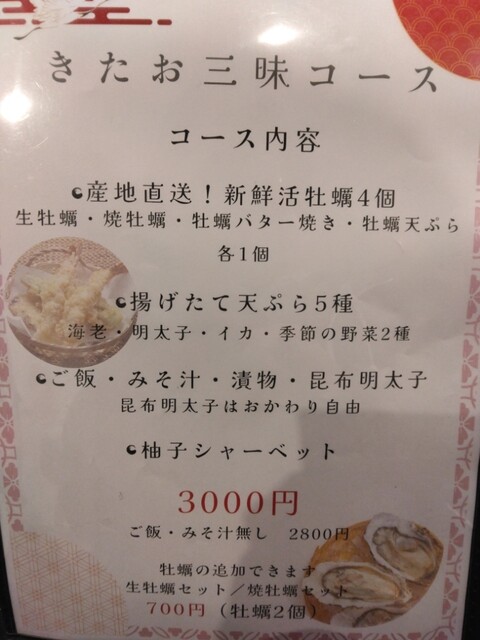 きたお三昧コース
コース内容
産地直送！新鮮活牡蠣4個
生牡蠣・焼牡蠣・牡蠣バター焼き・牡蠣天ぷら
各1個
揚げたて天ぷら5種
海老・明太子・イカ・季節の野菜2種
ご飯・みそ汁・漬物・昆布明太子
昆布明太子はおかわり自由
柚子シャーベット
3000円
ご飯・みそ汁無し 2800円
牡蠣の追加できます
生牡蠣セット／焼牡蠣セット
700円（牡蠣2個）